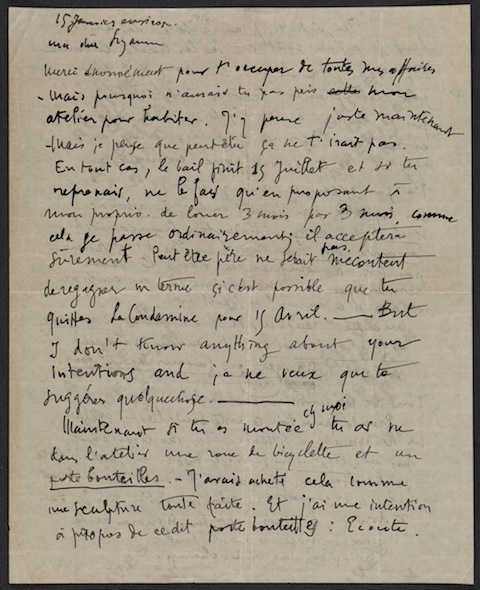 15 Janvier environ.
ma chère Suzanne
merci énormément pour t'occuper de toutes mes affaires
- Mais pourquoi n'aurais tu pas pris mon
atelier pour habiter. J'y pense juste maintenant
- Mais je pense que peut être ça ne t'irait pas.
En tout cas, le bail finit 15 Juillet et si tu
reprenais, ne le fais qu'en proposant à
mon proprio. de louer 3 mois par 3 mois, comme
cela se passe ordinairement; il acceptera
sûrement. Peut être père ne serait pas mécontent
de regagner un terme si c'est possible que tu
quittes La Condamine pour 15 Avril. — But
I don't know anything about your
intentions and je ne veux que te
suggérer quelquechose. ———
Maintenant si tu es montée ch moi tu as vu
dans l'atelier une roue de bicyclette et un
porte bouteilles. - J'avais acheté cela comme
une sculpture toute faite. Et j'ai une intention
à propos de ce dit porte bouteilles : Ecoute.